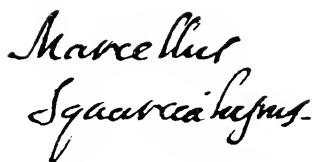 Marcellus
Squarcialupus.